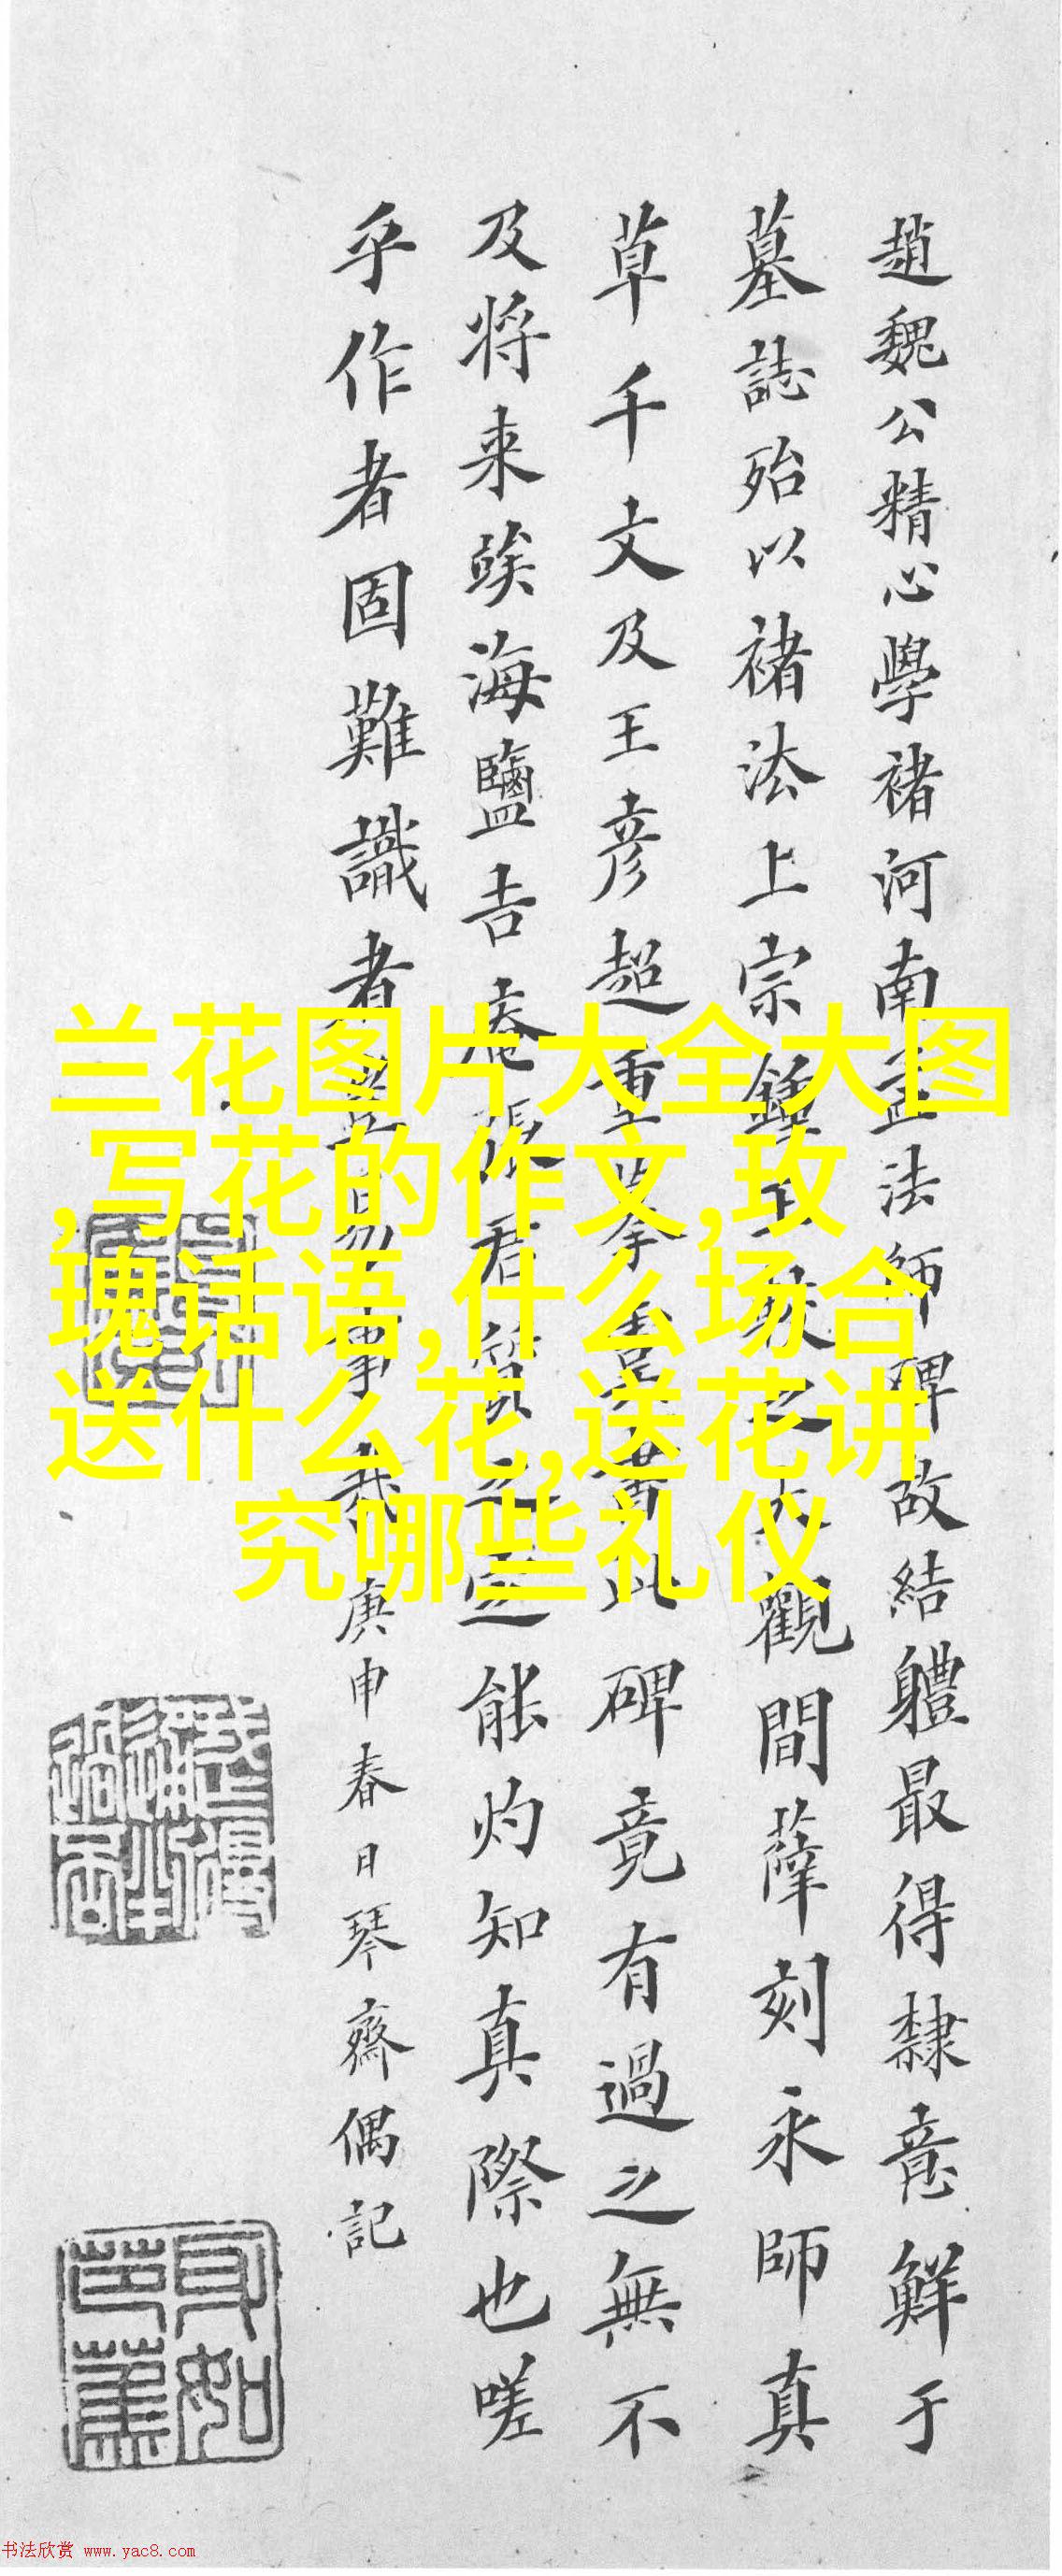 趙魏公精心學褚河南孟法師碑故結軆最得隸意鮮于
墓誌殆以褚法上宗鍾大觀間薛刻永師真
草千文及王彦超重摹書此碑竟有過之無不
及将来竢海鹽吉庵張君質之定能灼知真際也嗟
乎作者固難識者事哉庚申春日琴齋偶記
兰花图片大全大图
,写花的作文,玫
瑰话语,什么场合
送什么花,送花讲
究哪些礼仪
书法欣赏 www.yac8.com